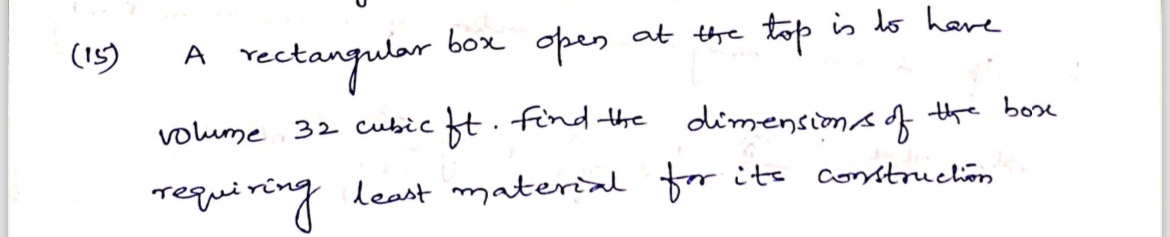 (15) A rectangular box open at the top is to have
volume 32 cubic ft. find the dimensions of the box
requiring least material for its construction